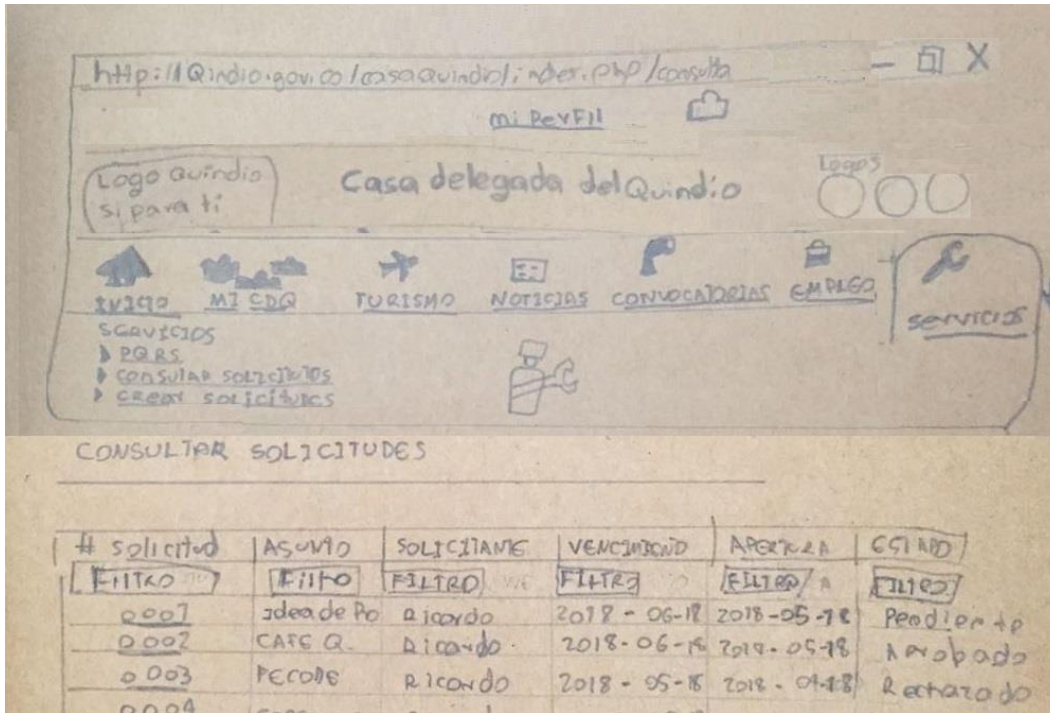 http://Qindio.gov.co/casaquindio/index.php/consulta
mi PerFil
Logo Quindio
si para ti
Casa delegada del Quindio
Logos
INICIO MI CDQ TURISMO NOTICIAS CONVOCATORIAS EMPLEO servicios
SERVICIOS
PQRS
CONSULAR SOLICITUDES
CREAR SOLICITUDES
CONSULTAR SOLICITUDES
# solicitud ASUNTO SOLICITANTE VENCIMIENTO APERTURA ESTADO
FILTRO Filtro FILTRO FILTRO FILTRO FILTRO
0001 Idea de Po Ricardo 2018-06-18 2018-05-18 Pendiente
0002 CAFE Q. Ricardo. 2018-06-18 2018-05-18 Aprobado
0003 Ricardo 2018-05-18 2018-04-18 Rechazado
0004